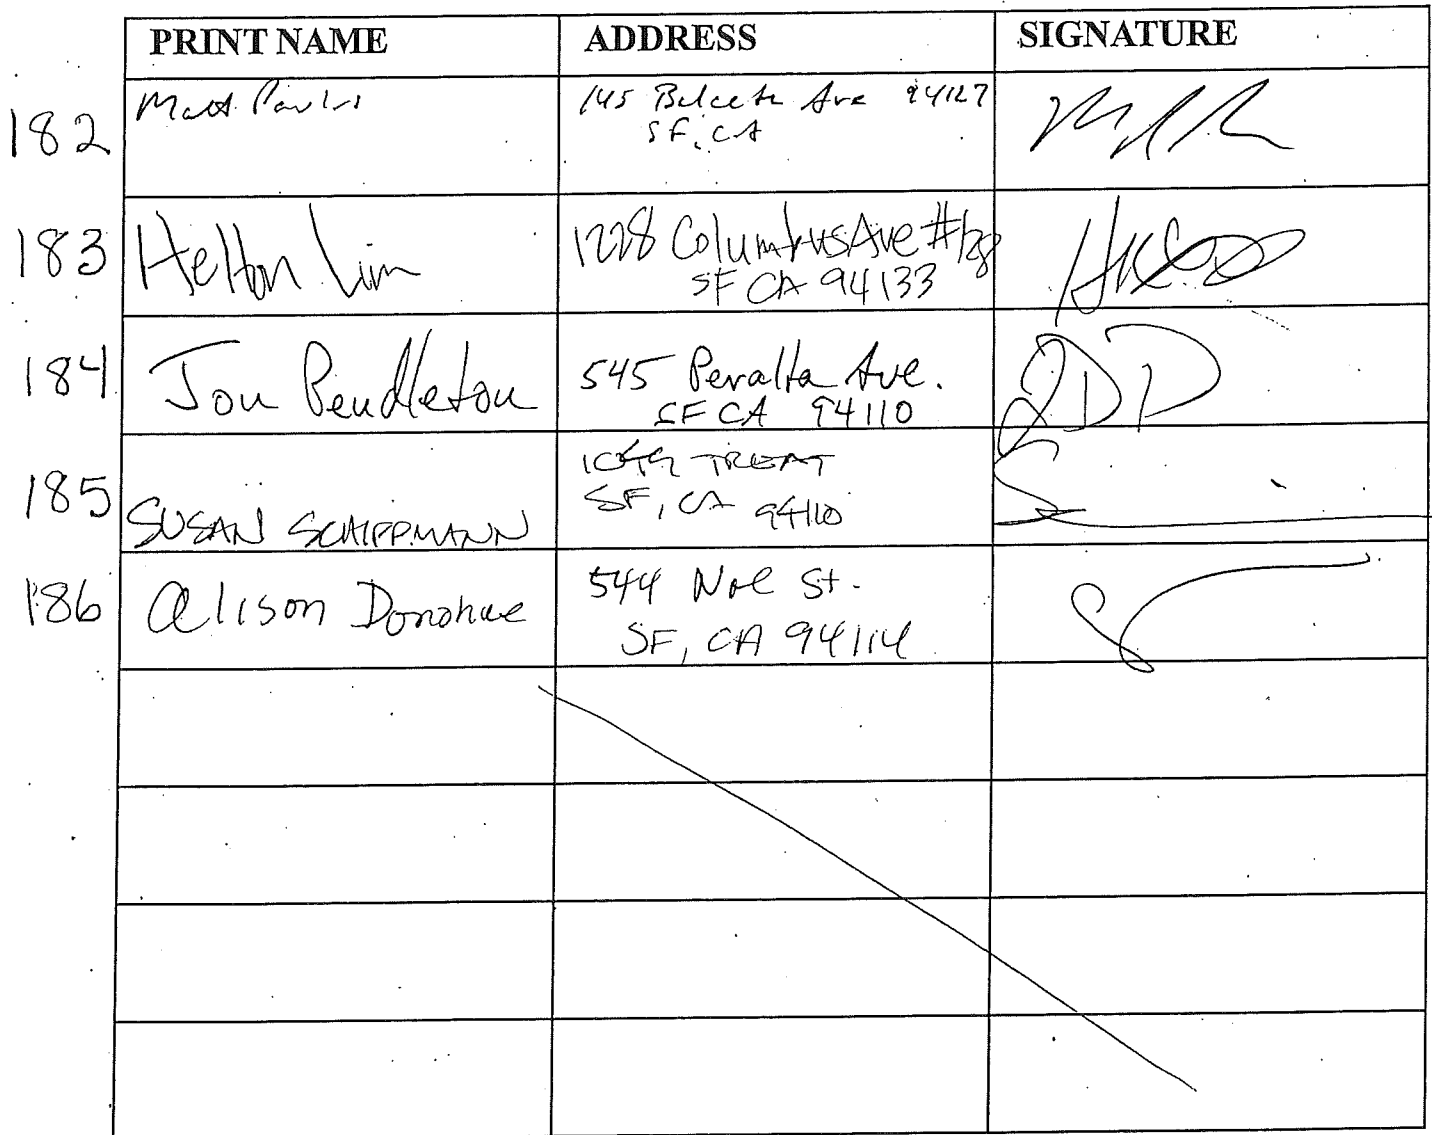 PRINT NAME ADDRESS SIGNATURE
182 Matt 145 Ave 94127
SF, CA
183 Helton Lim 1228 Columbus Ave #
SF CA 94133
184 Jon Pendleton 545 Peralta Ave.
SF CA 94110
185 SUSAN SCHIPPMANN 1049 TREAT
SF, CA 94110
186 Alison Donohue 544 Noe St.
SF, CA 94114